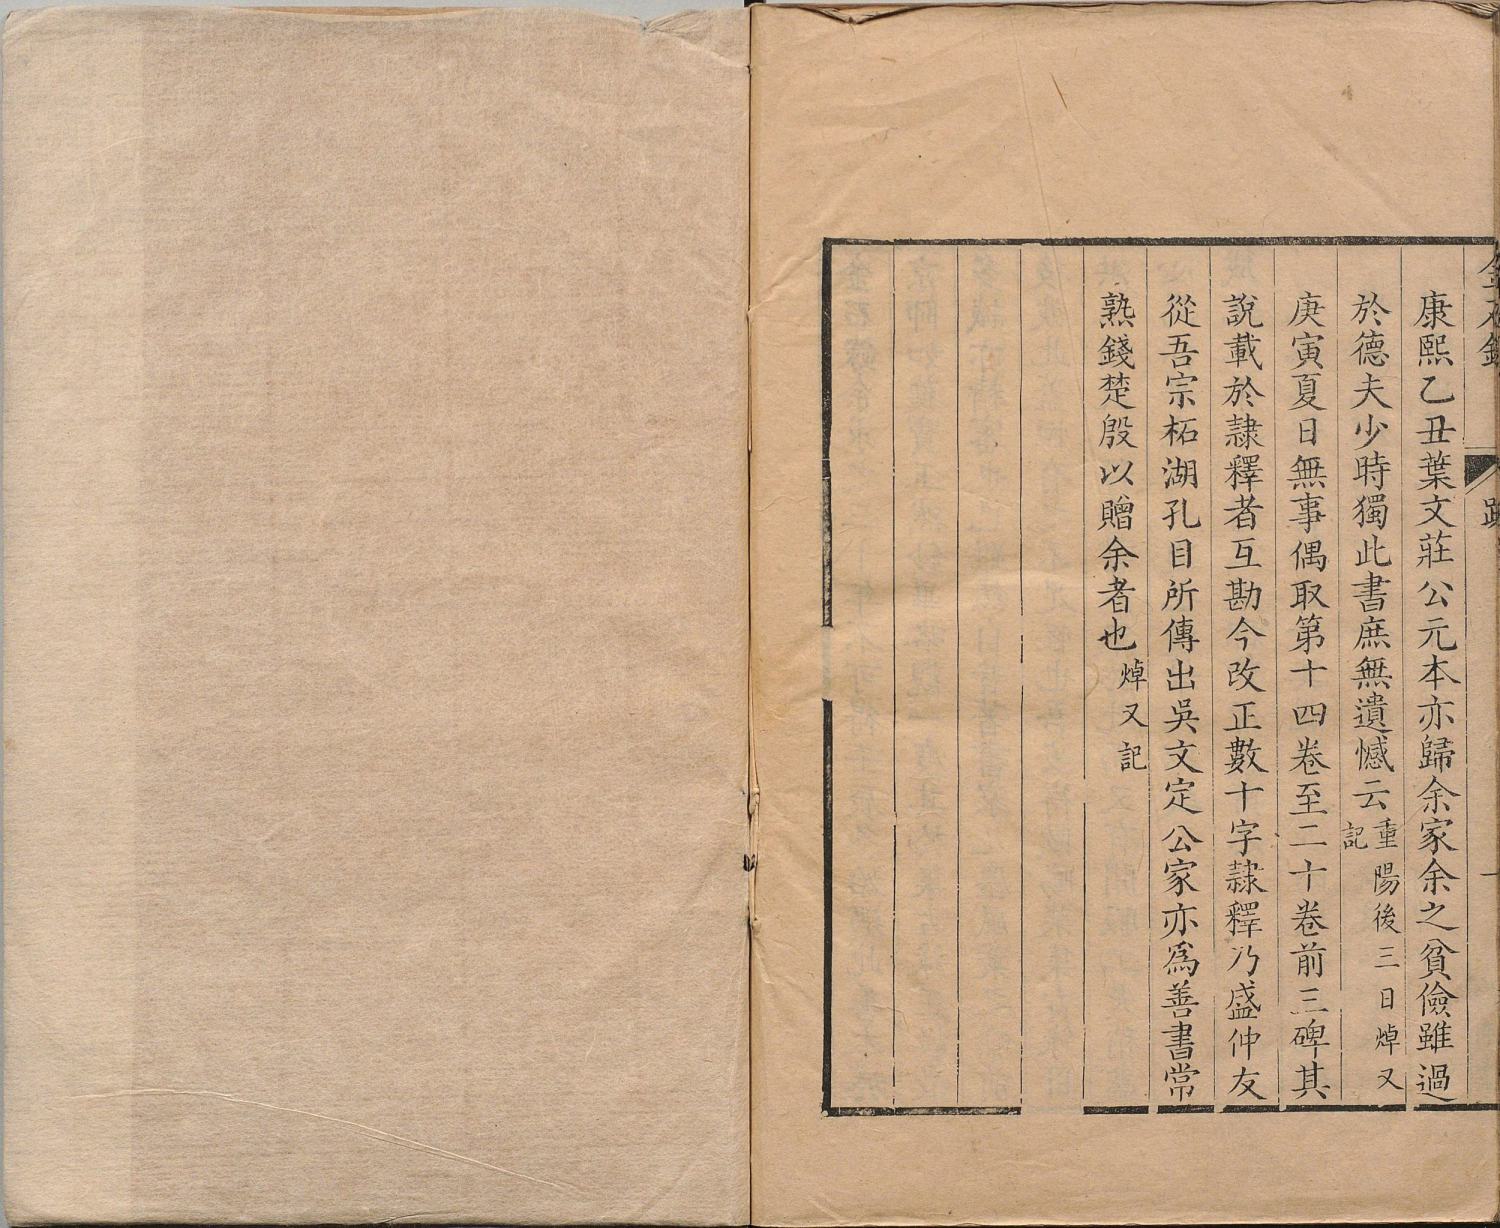 金石錄 跋
康熙乙丑葉文莊公元本亦歸余家余之貧儉雖過
於德夫少時獨此書庶無遺憾云重陽後三日焯又記
庚寅夏日無事偶取第十四卷至二十卷前三碑其
說載於隷釋者互勘今改正數十字隷釋乃盛仲友
從吾宗柘湖孔目所傳出吳文定公家亦爲善書常
熟錢楚殷以贈余者也焯又記